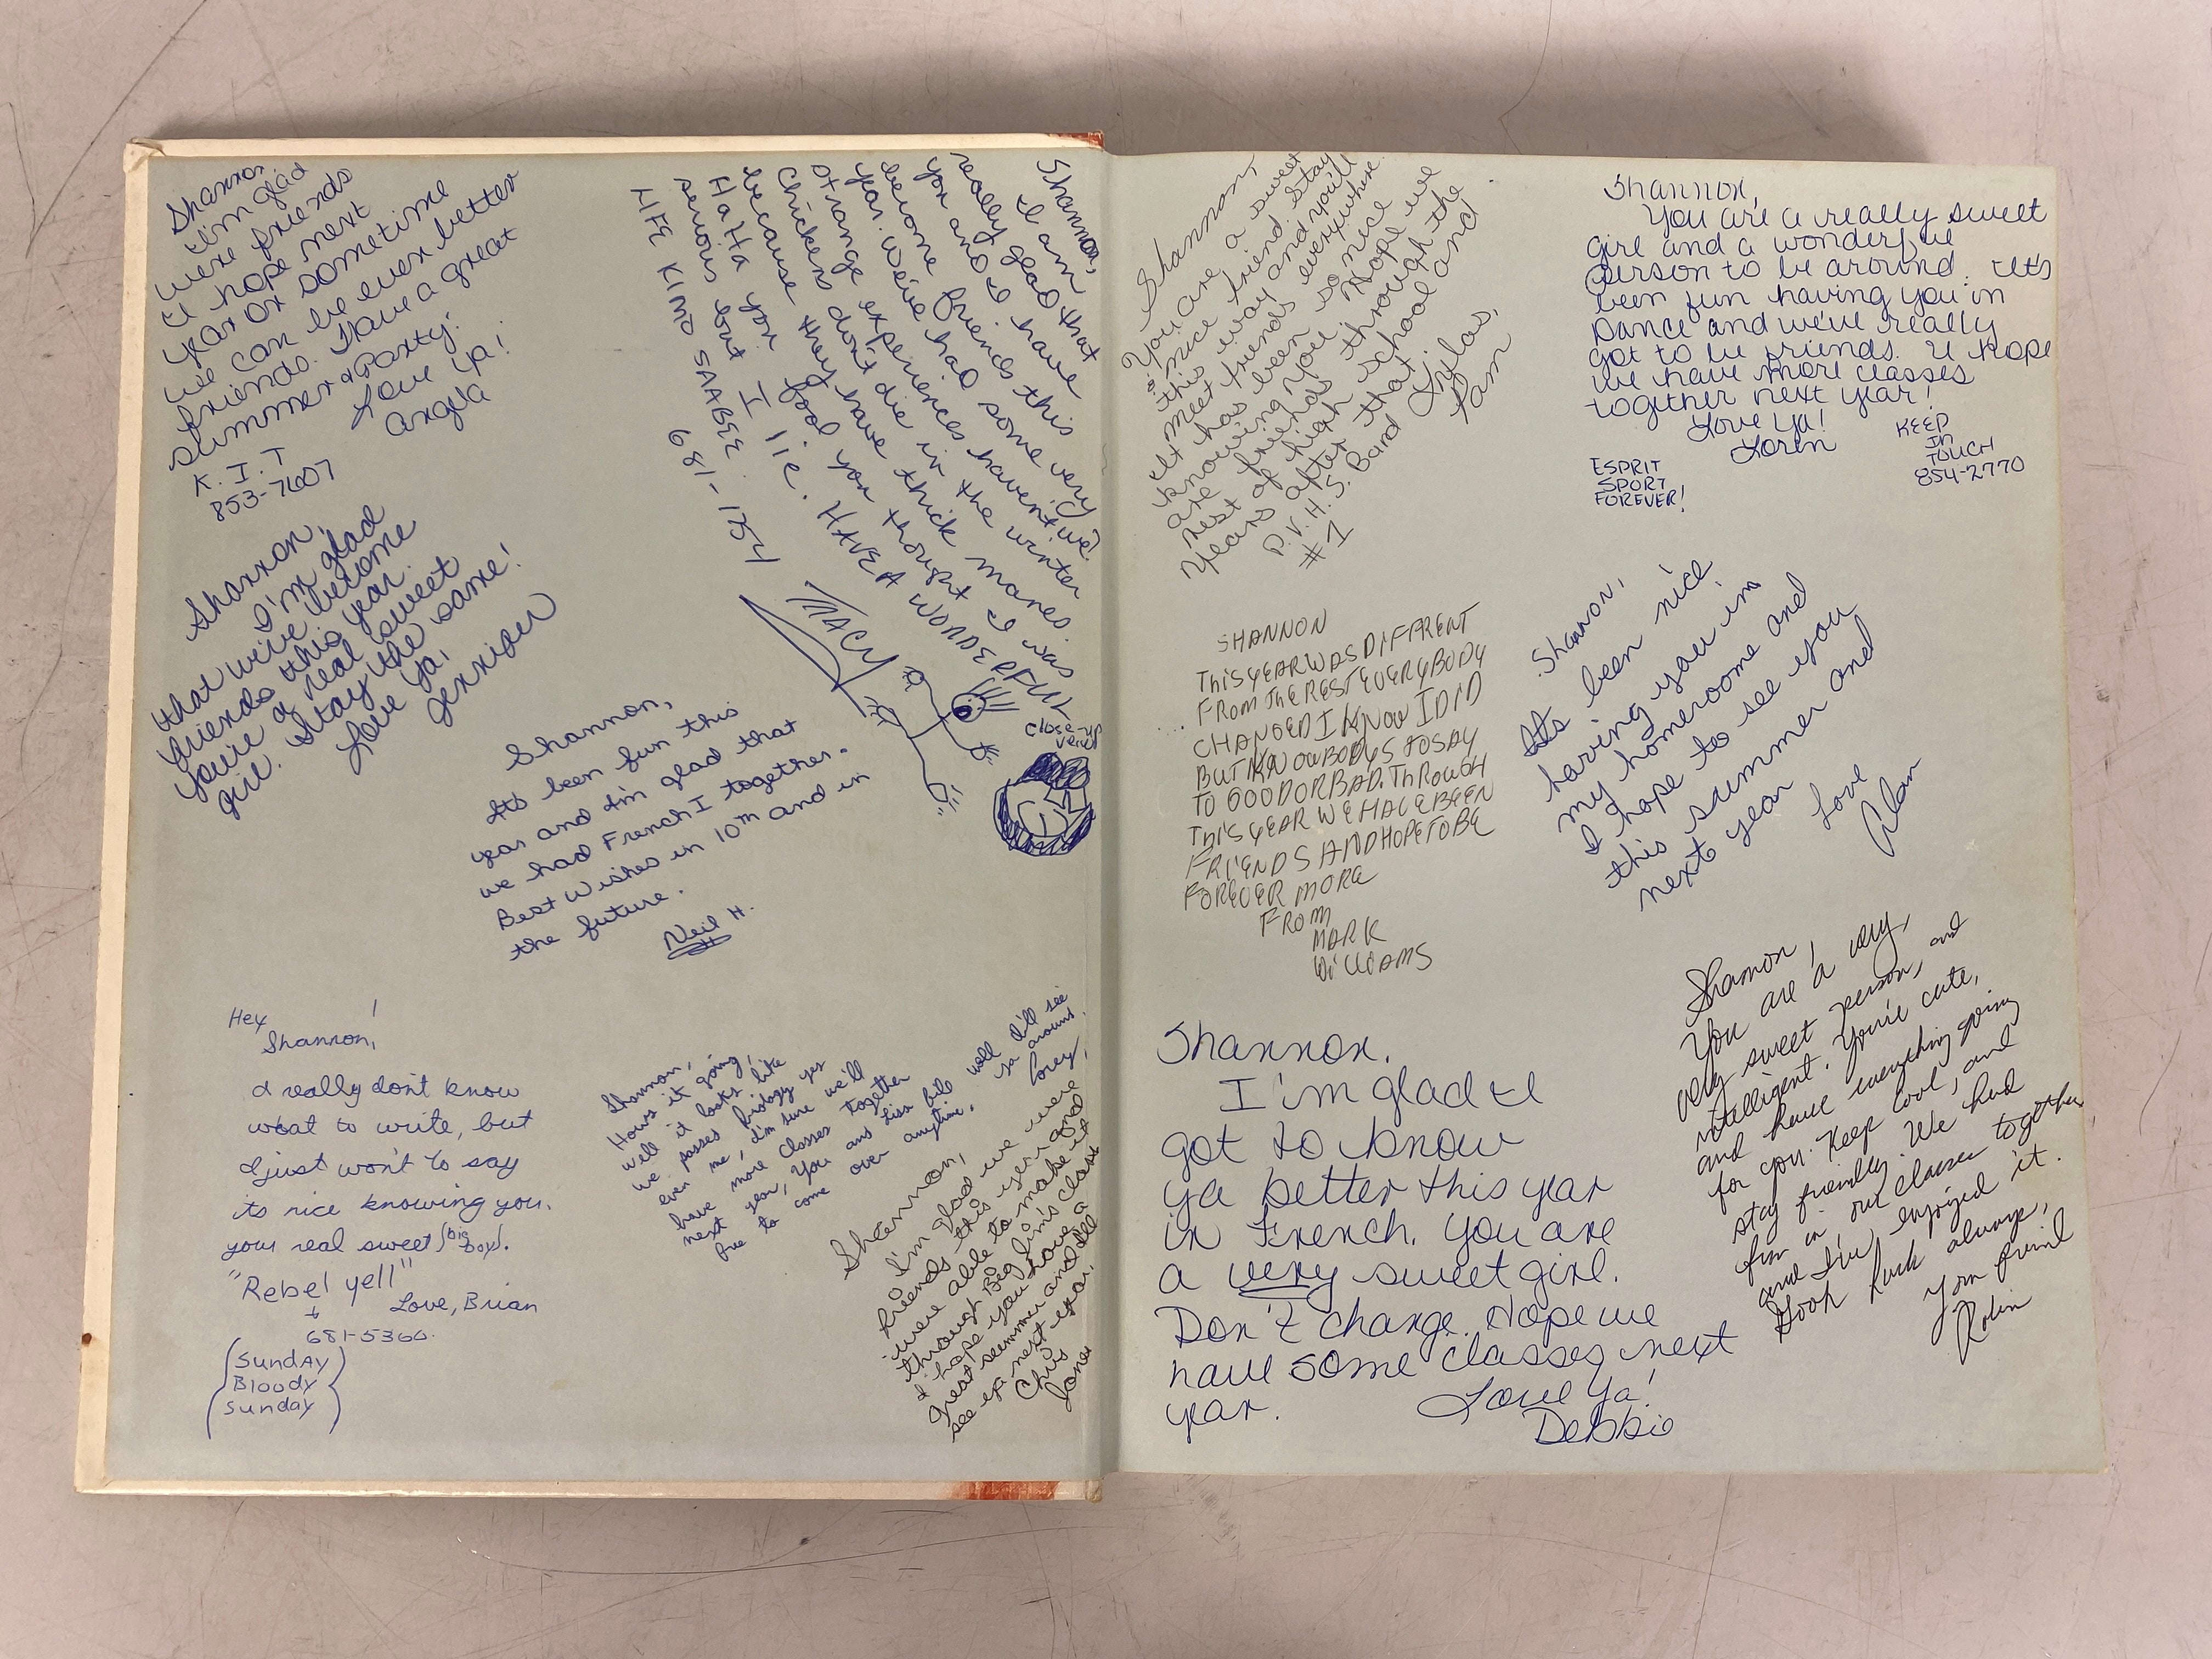 Shannon
I'm glad
were friends
I hope next
year or sometime
we can be ever better
friends. Have a great
summer & Party!
Love Ya!
Angela
K.I.T
853-7607
Shannon,
I'm glad
that we've become
friends this year.
You're a real sweet
girl. Stay the same!
Love Ya,
Jennifer
Shannon,
I am
really glad that
you and I have
become friends this
year. We've had some very
strange experiences haven't we?
Chickens don't die in the winter
because they have thick manes.
HaHa you fool you thought I was
serious but I lie. HAVE A WONDERFUL
LIFE KIMO SABEE.
681-1754
TRACY
close-up
view
Shannon,
It's been fun this
year and I'm glad that
we had French I together.
Best Wishes in 10th and in
the future.
Neil H.
Hey
Shannon!
I really don't know
what to write, but
I just won't to say
its nice knowing you.
your real sweet (big boy).
"Rebel yell"
Love, Brian
681-5360.
(Sunday
Bloody
Sunday)
Shannon,
Hows it going,
well it looks like
we passes biology yes
even me, I'm sure we'll
have more classes together
next year, You and Lisa fill
free to come over anytime.
well I'll see
ya around.
Corey
Shannon,
I'm glad we were
friends this year and
were able to make it
through Big Jim's class
I hope you have a
great summer and I'll
see ya next year.
Chris
Jones
Shannon,
You are a sweet
& nice friend stay
this way and you'll
meet friends everywhere.
It has been so nice
knowing you. Hope we
are friends through the
rest of high school and
years after that
Lylas,
Pam
P.V.H.S. Band
#1
Shannon,
You are a really sweet
girl and a wonderful
person to be around. It's
been fun having you in
Dance and we've really
got to be friends. I hope
we have more classes
together next year!
Love Ya!
Loren
KEEP
In
TOUCH
854-2770
ESPRIT
SPORT
FOREVER!
SHANNON
This YEAR WAS DiFFRENT
FROM THE REST EVERYBODY
CHANGED I KNOW I DID
BUT KNOWBODYS TO SAY
TO GOOD OR BAD. THROUGH
This YEAR WE HAVE BEEN
FRiENDS AND HOPE TO BE
FOREVER MORE
FROM
MARK
WilliAMS
Shannon,
It's been nice
having you in
my homeroome and
I hope to see you
this summer and
next year
Love
Alan
Shannon,
You are a very,
very sweet person, and
intelligent. You're cute,
and have everything going
for you. Keep cool, and
stay friendly. We had
fun in our classes together
and I've enjoyed it.
Good luck always,
Your friend
Robin
Shannon.
I'm glad I
got to know
ya better this year
in French. You are
a very sweet girl.
Don't change. Hope we
have some classes next
year.
Love Ya!
Debbie